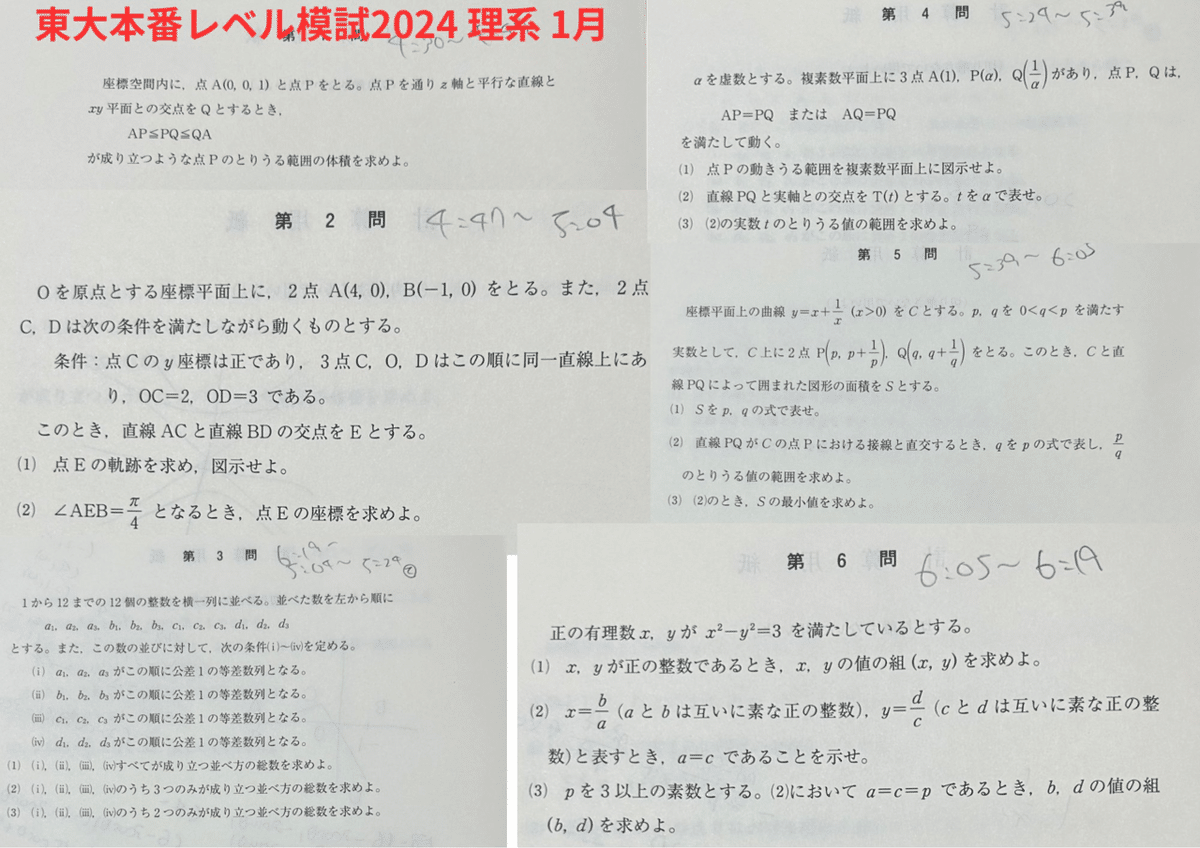 東大本番レベル模試2024 理系 1月
座標空間内に，点 A(0, 0, 1) と点 P をとる。点 P を通り z 軸と平行な直線と
xy 平面との交点を Q とするとき，
AP≦PQ≦QA
が成り立つような点 P のとりうる範囲の体積を求めよ。
第 2 問 4:47～5:04
O を原点とする座標平面上に，2 点 A(4, 0), B(−1, 0) をとる。また，2 点
C, D は次の条件を満たしながら動くものとする。
条件：点 C の y 座標は正であり，3 点 C, O, D はこの順に同一直線上にあ
り，OC=2, OD=3 である。
このとき，直線 AC と直線 BD の交点を E とする。
(1) 点 E の軌跡を求め，図示せよ。
(2) ∠AEB=π/4 となるとき，点 E の座標を求めよ。
第 3 問 6:19～
5:04～5:24
1 から 12 までの 12 個の整数を横一列に並べる。並べた数を左から順に
a₁, a₂, a₃, b₁, b₂, b₃, c₁, c₂, c₃, d₁, d₂, d₃
とする。また，この数の並びに対して，次の条件(i)～(iv)を定める。
(i) a₁, a₂, a₃ がこの順に公差 1 の等差数列となる。
(ii) b₁, b₂, b₃ がこの順に公差 1 の等差数列となる。
(iii) c₁, c₂, c₃ がこの順に公差 1 の等差数列となる。
(iv) d₁, d₂, d₃ がこの順に公差 1 の等差数列となる。
(1) (i), (ii), (iii), (iv)すべてが成り立つ並べ方の総数を求めよ。
(2) (i), (ii), (iii), (iv)のうち 3 つのみが成り立つ並べ方の総数を求めよ。
(3) (i), (ii), (iii), (iv)のうち 2 つのみが成り立つ並べ方の総数を求めよ。
第 4 問 5:24～5:39
α を虚数とする。複素数平面上に 3 点 A(1), P(α), Q(1/α) があり，点 P, Q は，
AP=PQ または AQ=PQ
を満たして動く。
(1) 点 P の動きうる範囲を複素数平面上に図示せよ。
(2) 直線 PQ と実軸との交点を T(t) とする。t を α で表せ。
(3) (2)の実数 t のとりうる値の範囲を求めよ。
第 5 問 5:39～6:05
座標平面上の曲線 y=x+1/x (x>0) を C とする。p, q を 0<q<p を満たす
実数として，C 上に 2 点 P(p, p+1/p), Q(q, q+1/q) をとる。このとき，C と直
線 PQ によって囲まれた図形の面積を S とする。
(1) S を p, q の式で表せ。
(2) 直線 PQ が C の点 P における接線と直交するとき，q を p の式で表し，p/q
のとりうる値の範囲を求めよ。
(3) (2)のとき，S の最小値を求めよ。
第 6 問 6:05～6:19
正の有理数 x, y が x²−y²=3 を満たしているとする。
(1) x, y が正の整数であるとき，x, y の値の組 (x, y) を求めよ。
(2) x=b/a (a と b は互いに素な正の整数), y=d/c (c と d は互いに素な正の整
数)と表すとき，a=c であることを示せ。
(3) p を 3 以上の素数とする。(2)において a=c=p であるとき，b, d の値の組
(b, d) を求めよ。